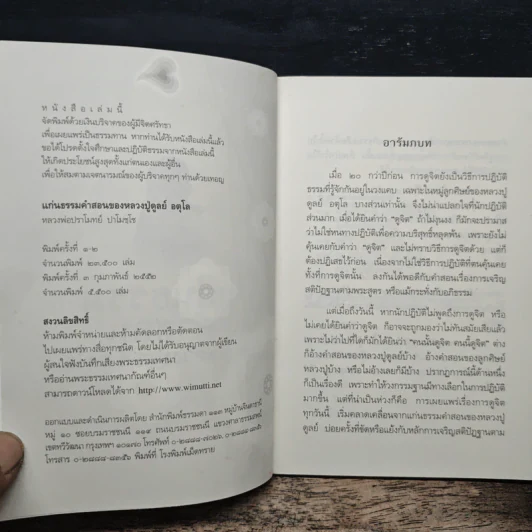 ห นั ง สื อ เ ล่ ม นี้
จัดพิมพ์ด้วยเงินบริจาคของผู้มีจิตศรัทธา
เพื่อเผยแพร่เป็นธรรมทาน หากท่านได้รับหนังสือเล่มนี้แล้ว
ขอได้โปรดตั้งใจศึกษาและปฏิบัติธรรมจากหนังสือเล่มนี้
ให้เกิดประโยชน์สูงสุดทั้งแก่ตนเองและผู้อื่น
เพื่อให้สมตามเจตนารมณ์ของผู้บริจาคทุกๆ ท่านด้วยเทอญ
แก่นธรรมคำสอนของหลวงปู่ดูลย์ อตุโล
หลวงพ่อปราโมทย์ ปาโมชฺโช
พิมพ์ครั้งที่ ๑-๒
จำนวนพิมพ์ ๒๓,๕๐๐ เล่ม
พิมพ์ครั้งที่ ๓ กุมภาพันธ์ ๒๕๕๒
จำนวนพิมพ์ ๕,๕๐๐ เล่ม
สงวนลิขสิทธิ์
ห้ามพิมพ์จำหน่ายและห้ามคัดลอกหรือตัดตอน
ไปเผยแพร่ทางสื่อทุกชนิด โดยไม่ได้รับอนุญาตจากผู้เขียน
ผู้สนใจฟังบันทึกเสียงพระธรรมเทศนา
หรืออ่านพระธรรมเทศนากัณฑ์อื่นๆ
สามารถดาวน์โหลดได้จาก http://www.wimutti.net
ออกแบบและดำเนินการผลิตโดย สำนักพิมพ์ธรรมดา ๑๑๓ หมู่บ้าน
หมู่ ๑๐ ซอยบรมราชชนนี ๑๑๙ ถนนบรมราชชนนี แขวงศาลาธรรมสพน์
เขตทวีวัฒนา กรุงเทพฯ ๑๐๑๗๐ โทรศัพท์
โทรสาร ๐-๒๘๘๘-๘๓๕๖ พิมพ์ที่ โรงพิมพ์เม็ดทราย
อารัมภบท
เมื่อ ๒๐ กว่าปีก่อน การดูจิตยังเป็นวิธีการปฏิบัติ
ธรรมที่รู้จักกันอยู่ในวงแคบ เฉพาะในหมู่ลูกศิษย์ของหลวงปู่
ดูลย์ อตุโล บางส่วนเท่านั้น จึงไม่น่าแปลกใจที่นักปฏิบัติ
ส่วนมาก เมื่อได้ยินคำว่า “ดูจิต” ถ้าไม่งุนงง ก็มักจะปรามาส
ว่าไม่ใช่หนทางปฏิบัติเพื่อความบริสุทธิ์หลุดพ้น เพราะยังไม่
คุ้นเคยกับคำว่า “ดูจิต” และไม่ทราบวิธีการดูจิตด้วย แต่ก็
ต้องปฏิเสธไว้ก่อน เนื่องจากไม่ใช่วิธีการปฏิบัติที่ตนคุ้นเคย
ทั้งที่การดูจิตนั้น ลงกันได้พอดีกับคำสอนเรื่องการเจริญ
สติปัฏฐานตามพระสูตร หรือแม้กระทั่งกับอภิธรรม
แต่เมื่อถึงวันนี้ หากนักปฏิบัติไม่พูดถึงการดูจิต หรือ
ไม่เคยได้ยินคำว่าดูจิต ก็อาจจะถูกมองว่าไม่ทันสมัยเสียแล้ว
เพราะไม่ว่าไปที่ใดก็มักได้ยินว่า “คนนั้นดูจิต คนนี้ดูจิต” ต่าง
ก็อ้างคำสอนของหลวงปู่ดูลย์บ้าง อ้างคำสอนของลูกศิษย์
หลวงปู่บ้าง หรือไม่อ้างเลยก็มีบ้าง ปรากฏการณ์นี้ด้านหนึ่ง
ก็เป็นเรื่องดี เพราะทำให้วงกรรมฐานมีทางเลือกในการปฏิบัติ
มากขึ้น แต่ที่น่าเป็นห่วงก็คือ การเผยแพร่เรื่องการดูจิต
ทุกวันนี้ เริ่มคลาดเคลื่อนจากแก่นธรรมคำสอนของหลวงปู่
ดูลย์ บ่อยครั้งที่ขัดหรือแย้งกับหลักการเจริญสติปัฏฐานตาม